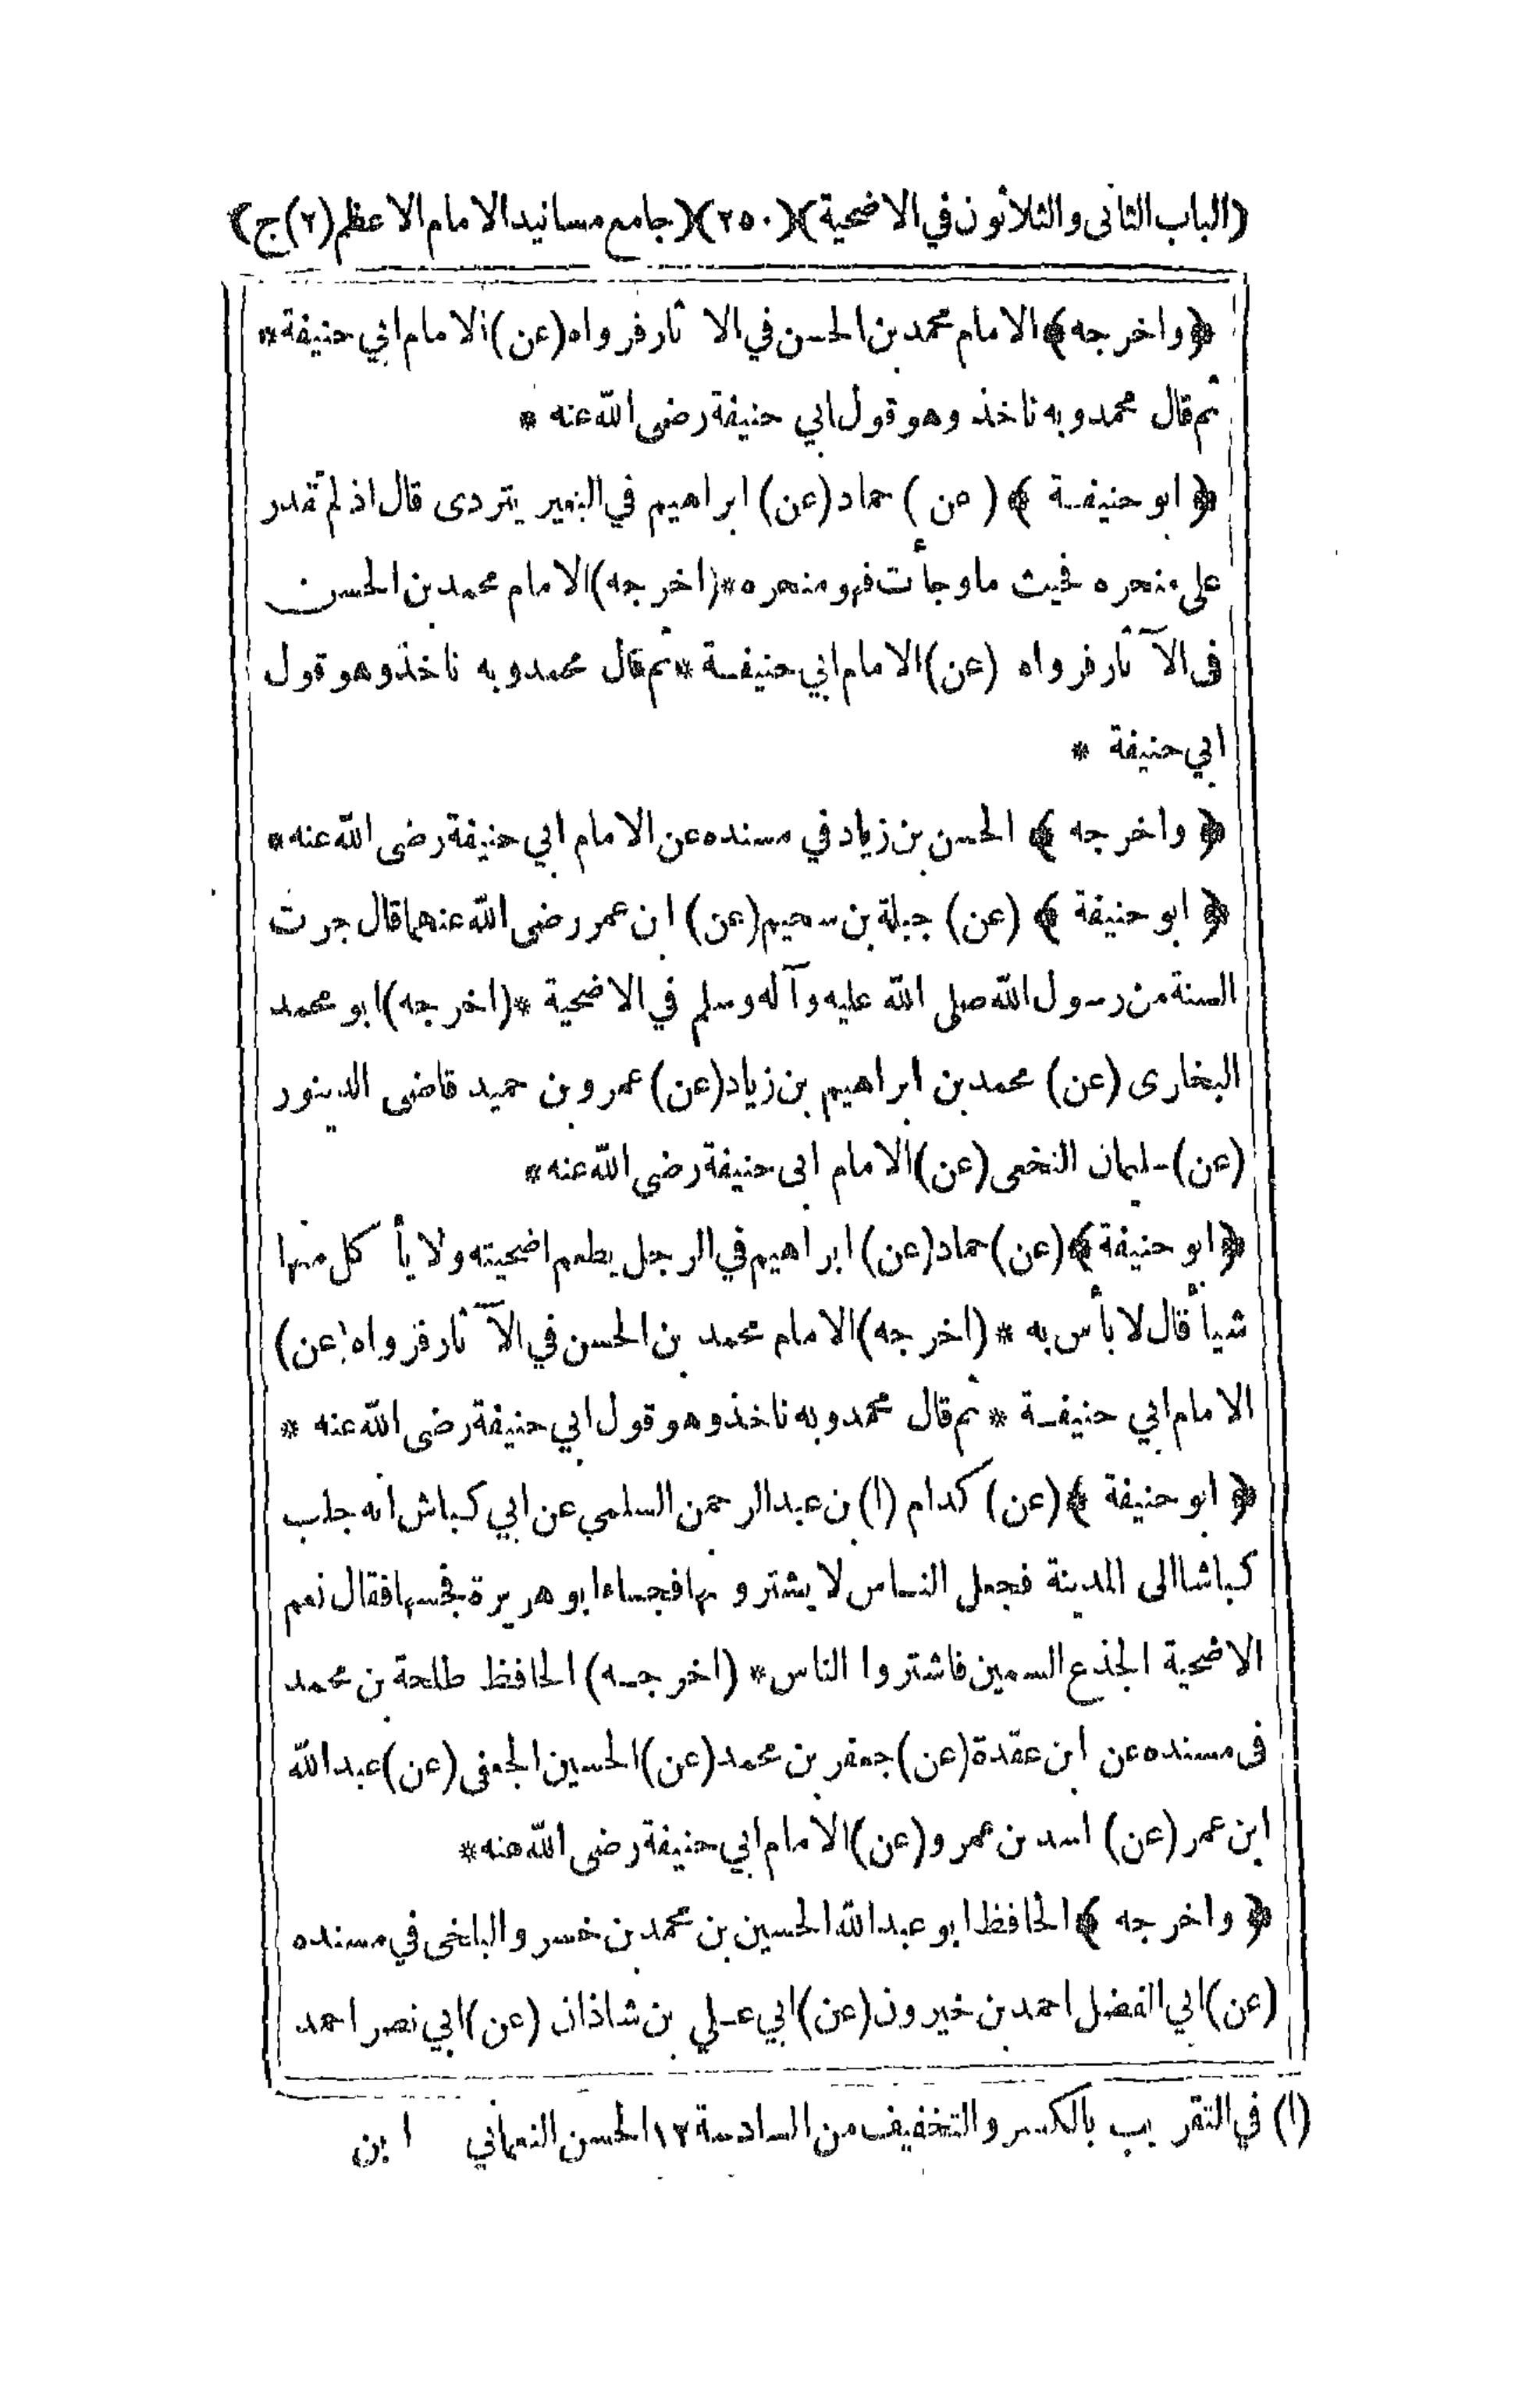 (الباب الثانى والثلاثون في الاضحية)(٢٥٠)(جامع مسانيد الامام الاعظم(٢)ج)
﴿واخرجه﴾ الامام محمد بن الحسن في الاثار فرواه(عن)الامام ابي حنيفة*
ثم قال محمد وبه ناخذ وهو قول ابي حنيفة رضى الله عنه *
﴿ابو حنيفة﴾ (عن) حماد(عن) ابراهيم في البعير يتردى قال اذ لم تقدر
على منحره فحيث ما وجأت فهو منحره*(اخرجه)الامام محمد بن الحسن
فى الآثار فرواه (عن)الامام ابي حنيفة *ثم قال محمد وبه ناخذ وهو قول
ابي حنيفة *
﴿واخرجه﴾ الحسن بن زياد في مسنده عن الامام ابي حنيفة رضى الله عنه*
﴿ابو حنيفة﴾ (عن) جبلة بن سحيم(عن) ابن عمر رضى الله عنهما قال جرت
السنة من رسول الله صلى الله عليه وآله وسلم في الاضحية *(اخرجه)ابو محمد
البخارى (عن) محمد بن ابراهيم بن زياد(عن)عمرو بن حميد قاضى الدينور
(عن)سليمان النخعى(عن)الامام ابى حنيفة رضى الله عنه*
﴿ابو حنيفة﴾(عن)حماد(عن)ابراهيم في الرجل يطعم اضحيته ولا يأكل منها
شيأ قال لا بأس به *(اخرجه)الامام محمد بن الحسن في الآثار فرواه(عن)
الامام ابي حنيفة *ثم قال محمد وبه ناخذ وهو قول ابي حنيفة رضى الله عنه *
﴿ابو حنيفة﴾(عن) كدام (١) بن عبد الرحمن السلمي عن ابي كباش انه جلب
كباشا الى المدينة فجعل الناس لا يشترونها فجاء ابو هريرة فجسها فقال نعم
الاضحية الجذع السمين فاشتروا الناس*(اخرجه)الحافظ طلحة بن محمد
فى مسنده عن ابن عقدة(عن)جعفر بن محمد(عن)الحسين الجعفى(عن)عبد الله
ابن عمر(عن) اسد بن عمرو(عن)الامام ابي حنيفة رضى الله عنه*
﴿واخرجه﴾ الحافظ ابو عبد الله الحسين بن محمد بن خسرو البلخى في مسنده
(عن)ابي الفضل احمد بن خيرون(عن)ابي علي بن شاذان (عن)ابي نصر احمد
(١) في التقريب بالكسر والتخفيف من السادسة ١٢ الحسن النعماني ابن